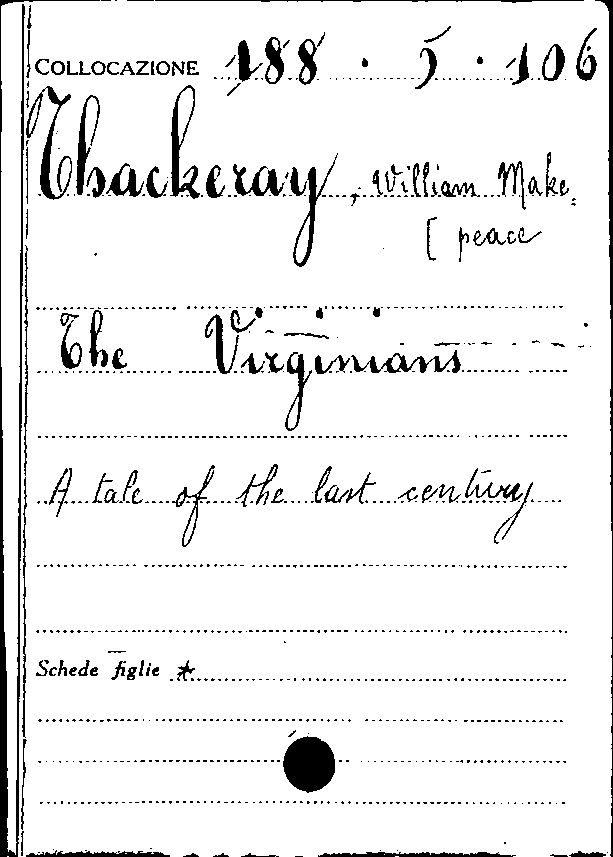 COLLOCAZIONE 188 . 5 . 106
Thackeray, William Make=
[ peace
The Virginians
A tale of the last century
Schede figlie *